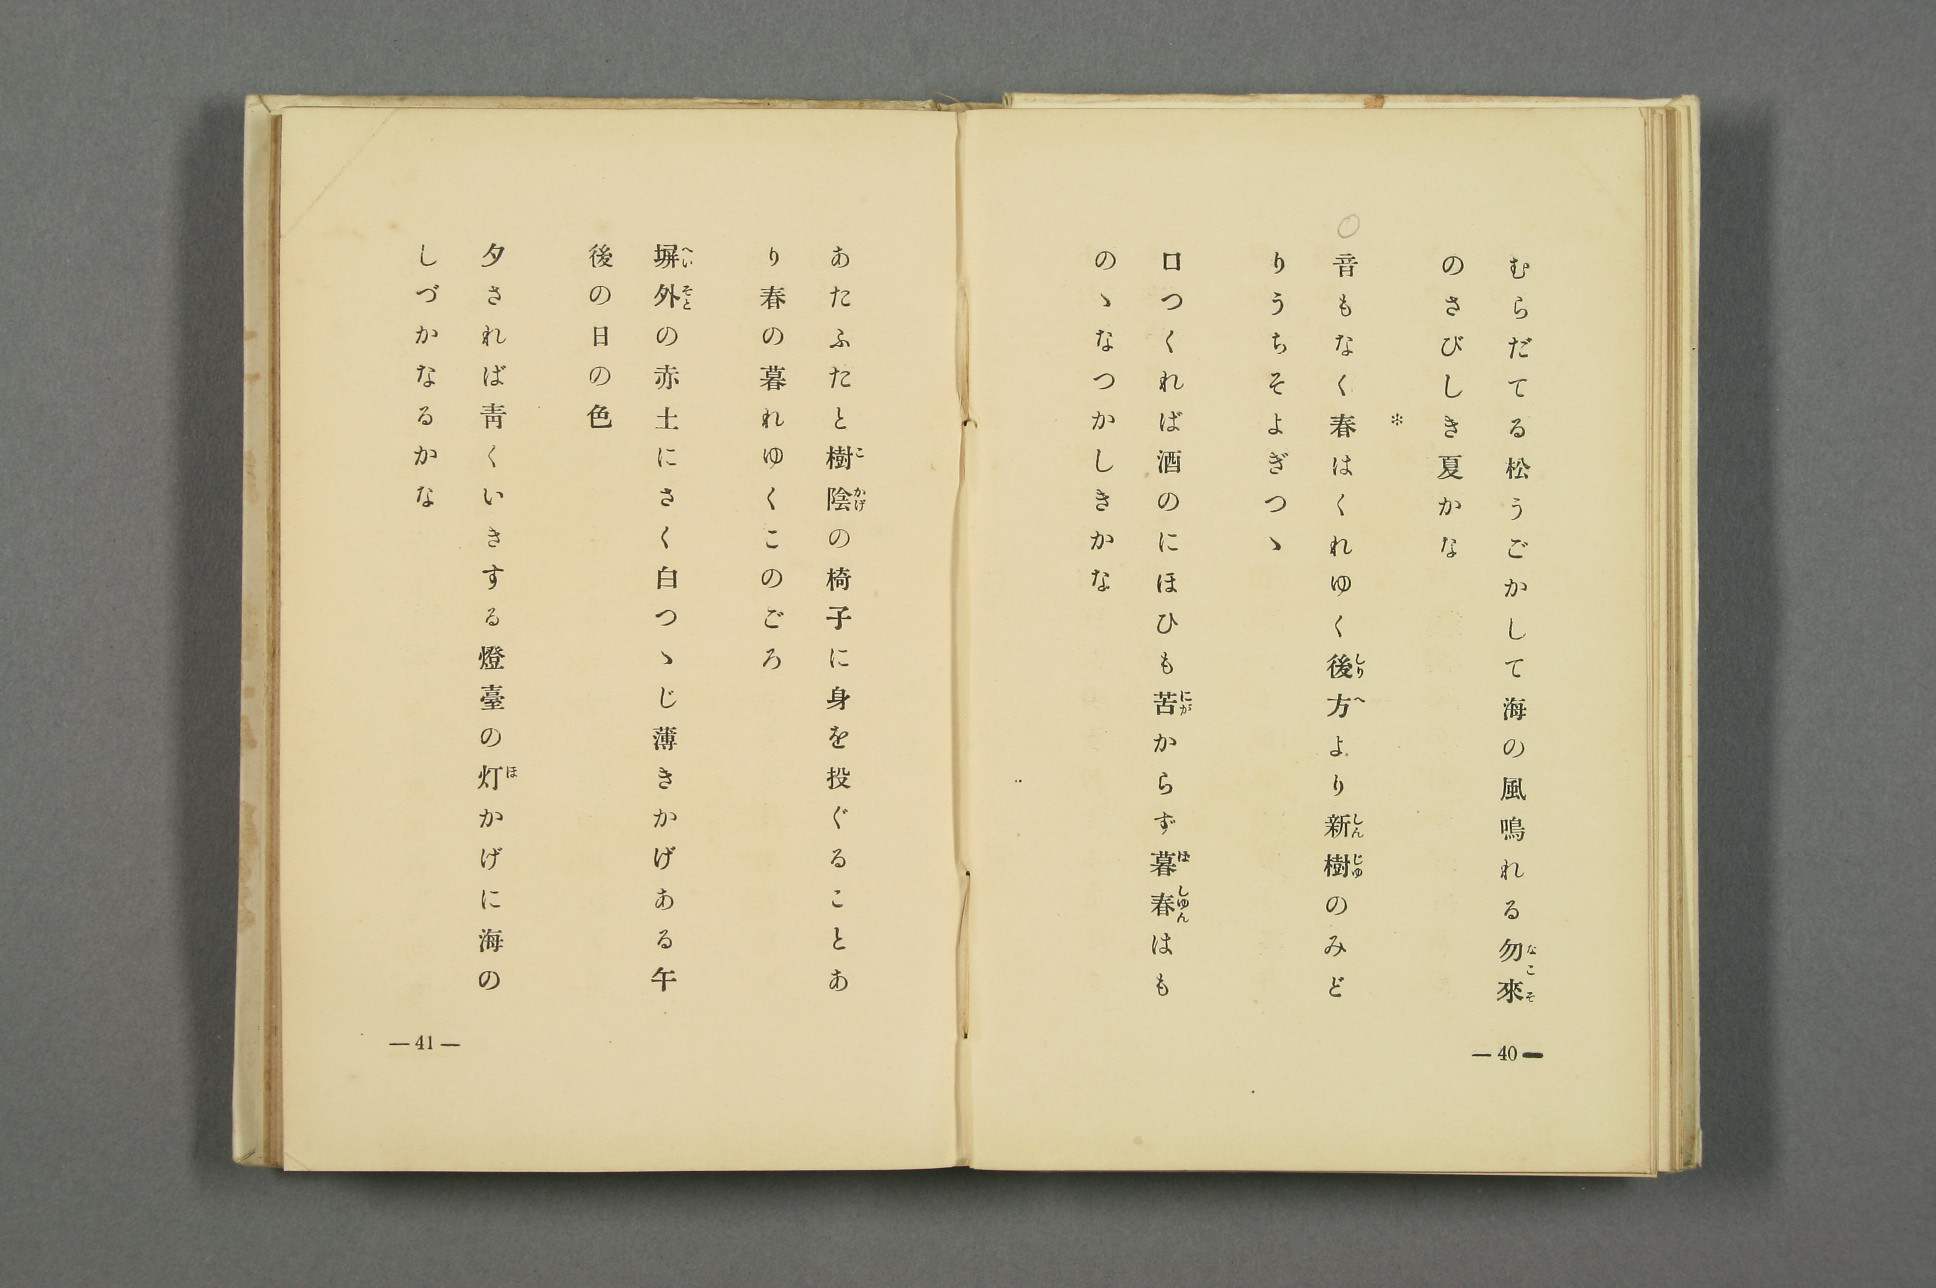 むらだてる松うごかして海の風鳴れる勿來
のさびしき夏かな
*
音もなく春はくれゆく後方より新樹のみど
りうちそよぎつゝ
口つくれば酒のにほひも苦からず暮春はも
のゝなつかしきかな
— 40 —
あたふたと樹陰の椅子に身を投ぐることあ
り春の暮れゆくこのごろ
塀外の赤土にさく白つゝじ薄きかげある午
後の日の色
夕されば靑くいきする燈臺の灯かげに海の
しづかなるかな
— 41 —